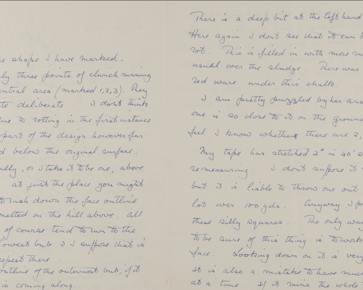 e shape I have marked.
ly three points of chunk missing
ntral area (marked 1, 2, 3). They
to deliberate I don't think
due to rotting in the first instance
part of the design however far
d below the original surface.
lly, or I take it to be one, above
at just the place you might
to rush down the face outline
melted on the hill above. All
of course tend to run to the
lowest bulb & I suppose that is
repeat there
outline of the outermost bulb, if it
is coming along
There is a deep bit at the left hand
Here again I don't see that it can b
rot. This is filled in with more
usual over the sludge There was
red ware under this chalk.
I am pretty puzzled by
one is so close to it on the groun
feel I know whether there are 2,
My tape has stretched 2" in 50'
remeasuring I don't suppose it
but it is liable to throw one out
lot over 100 yds. Anyway
these silly squares. The only way
to be sure of this thing is to work
face Looking down on it is very
It is also a mistake to have much
at a time If it rains the whole